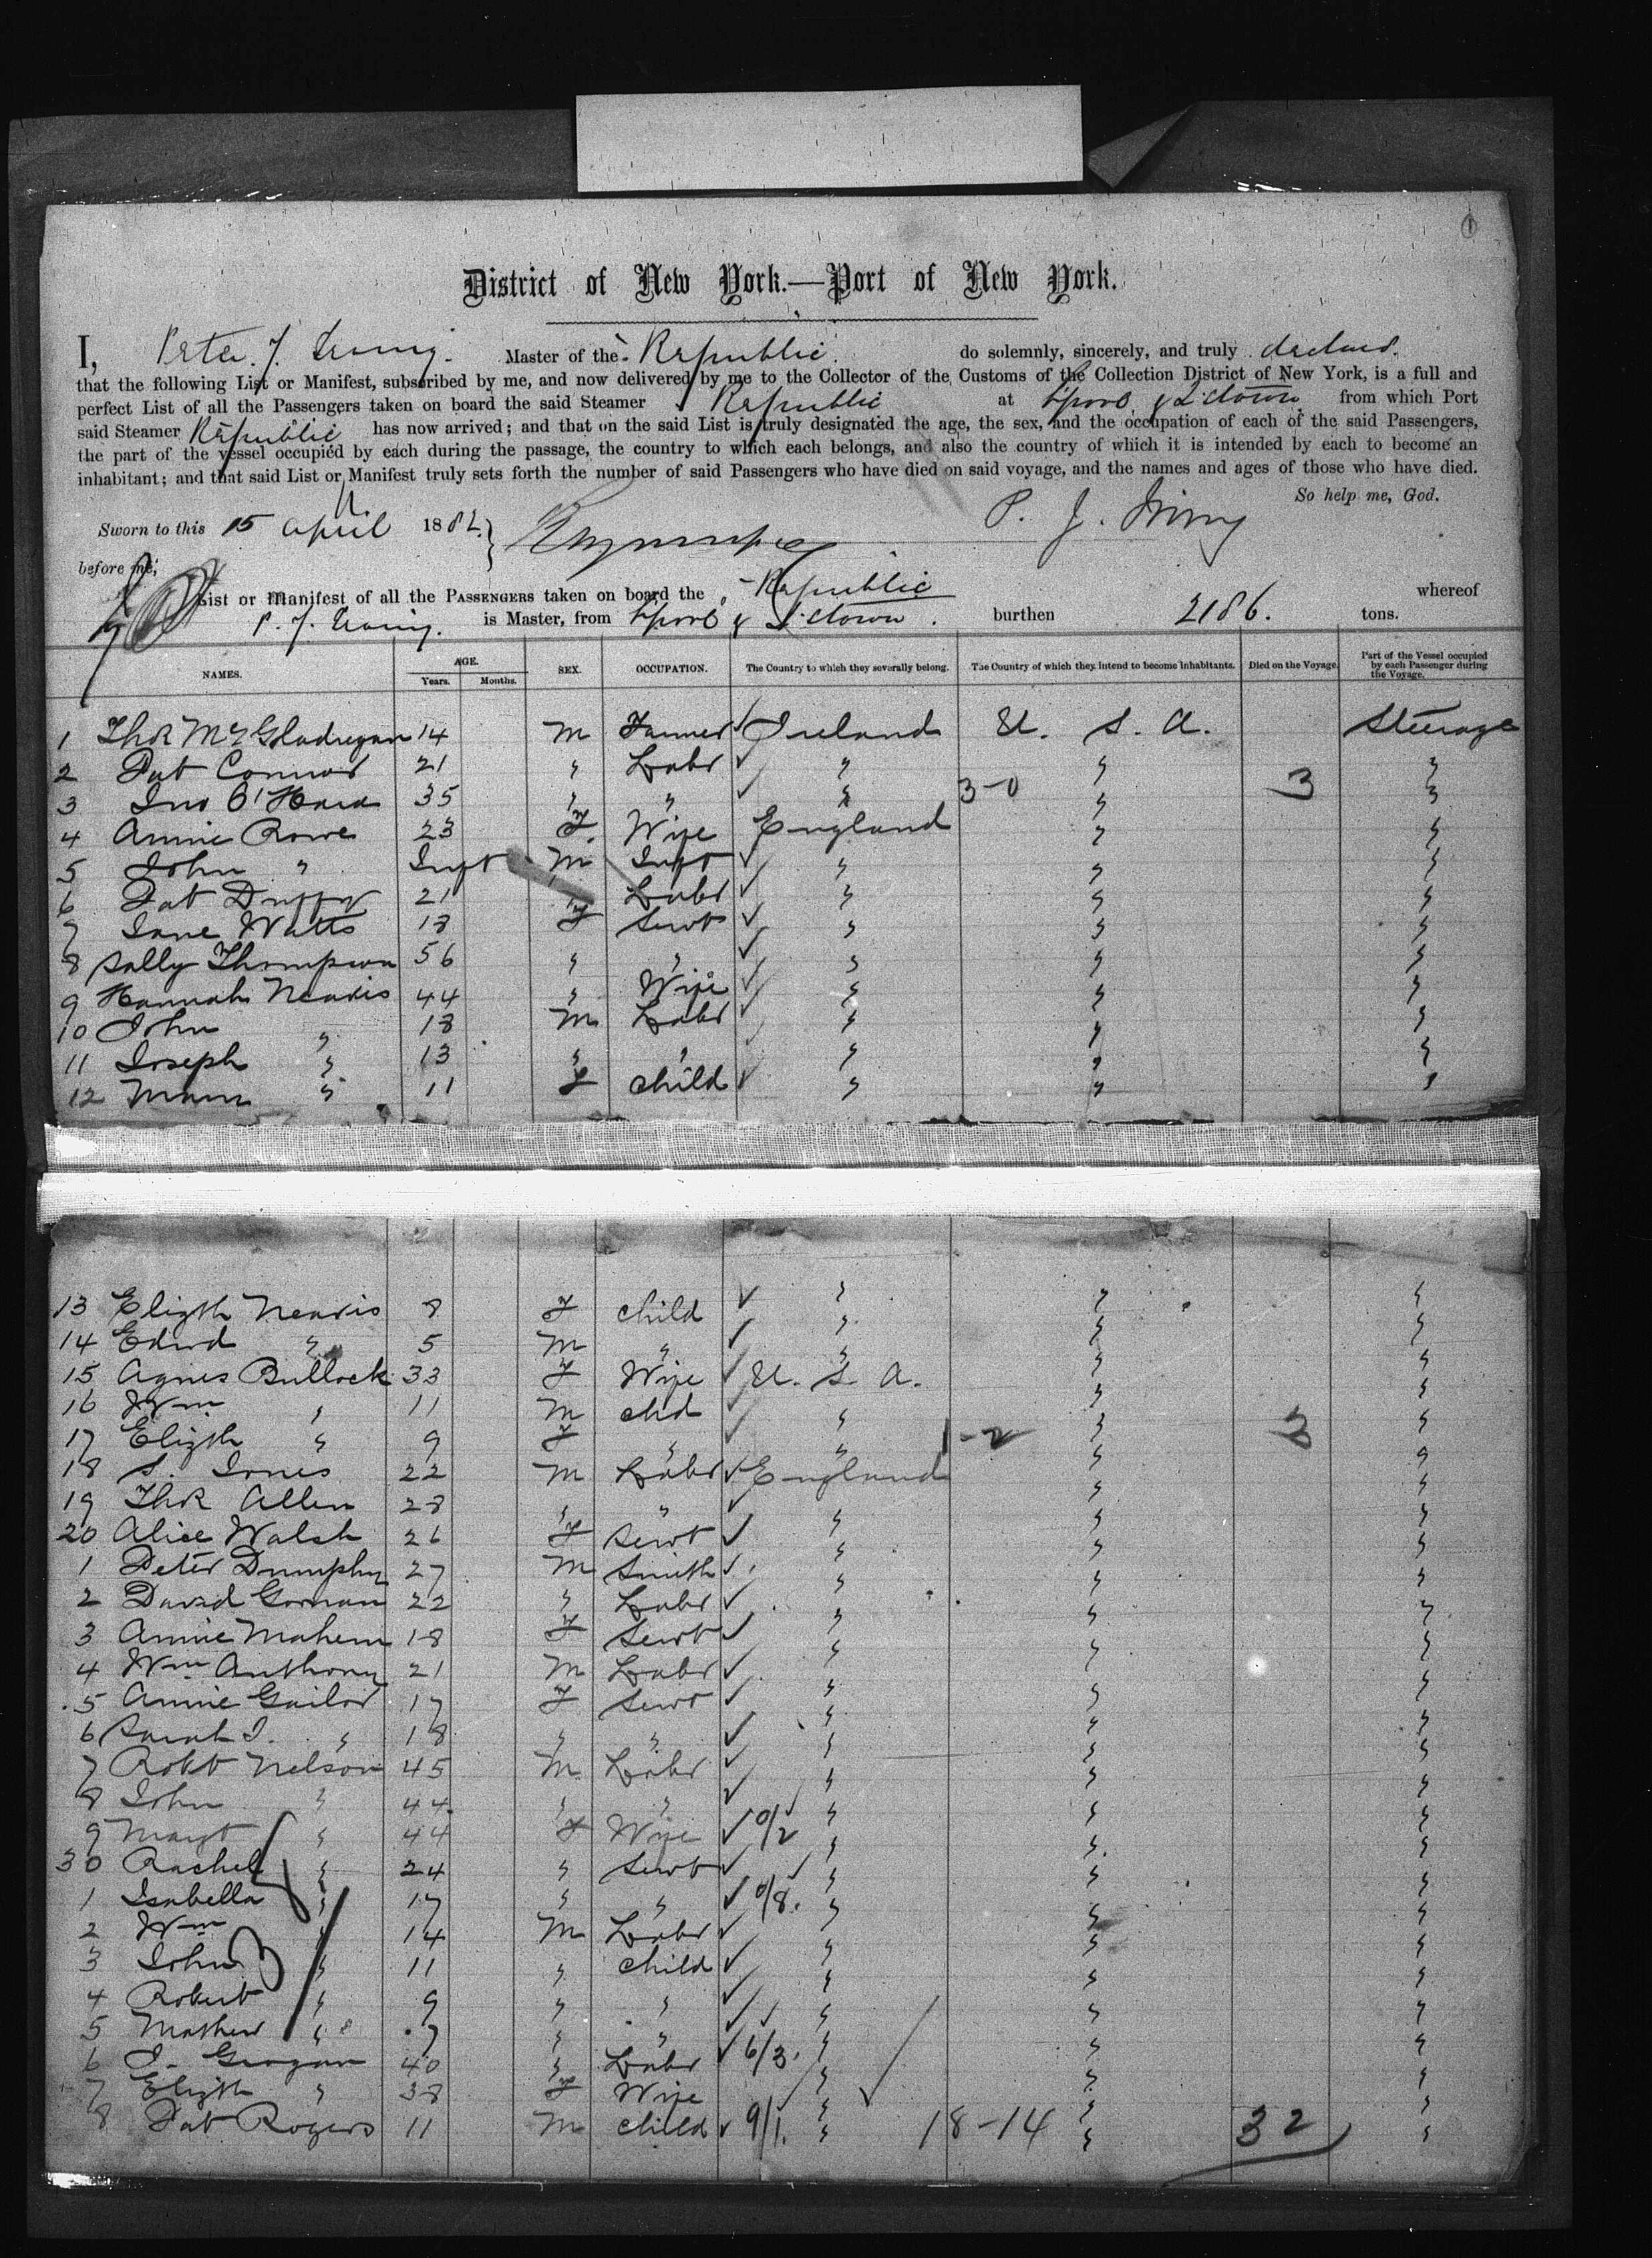 1
District of New York.—Port of New York.
I, Peter J. Irving. Master of the Republic. do solemnly, sincerely, and truly declare.
that the following List or Manifest, subscribed by me, and now delivered by me to the Collector of the Customs of the Collection District of New York, is a full and
perfect List of all the Passengers taken on board the said Steamer Republic at Lpool & Q'town. from which Port
said Steamer Republic has now arrived; and that on the said List is truly designated the age, the sex, and the occupation of each of the said Passengers,
the part of the vessel occupied by each during the passage, the country to which each belongs, and also the country of which it is intended by each to become an
inhabitant; and that said List or Manifest truly sets forth the number of said Passengers who have died on said voyage, and the names and ages of those who have died.
So help me, God.
Sworn to this 15 April 1882. P. J. Irving
before me,
List or Manifest of all the PASSENGERS taken on board the Republic whereof
P. J. Irving. is Master, from Lpool & Q'town. burthen 2186. tons.
NAMES. AGE. Years. Months. SEX. OCCUPATION. The Country to which they severally belong. The Country of which they intend to become inhabitants. Died on the Voyage. Part of the Vessel occupied by each Passenger during the Voyage.
1 Thos McGladregan 14 M Farmer Ireland U. S. A. Steerage
2 Pat Connor 21 " Labr " " "
3 Jno O'Hara 35 " " " 3-0 " 3 "
4 Annie Rowe 23 F. Wife England " "
5 John " Inft M Inft " " "
6 Pat Duffy 21 " Labr " " "
7 Jane Watts 18 F Servt " " "
8 Sally Thompson 56 " " " " "
9 Hannah Nearis 44 " Wife " " "
10 John " 18 M Labr " " "
11 Joseph " 13 " " " " "
12 Mary " 11 F Child " " "
13 Elizth Nearis 8 F Child " " "
14 Edwd " 5 M " " " "
15 Agnes Bullock 33 F Wife U. S. A. " "
16 Wm " 11 M Chd " " "
17 Elizth " 9 F " " 1-2 " 3 "
18 S. Jones 22 M Labr England " "
19 Thos Allen 28 " " " " "
20 Alice Walsh 26 F Servt " " "
1 Peter Dumphy 27 M Smith " " "
2 David Gorman 22 " Labr " " "
3 Annie Mahern 18 F Servt " " "
4 Wm Anthony 21 M Labr " " "
5 Annie Gailor 17 F Servt " " "
6 Sarah J. " 18 " " " " "
7 Robt Nelson 45 M Labr " " "
8 John " 44 " " " " "
9 Margt " 44 F Wife 0/2 " " "
30 Rachel " 24 " Servt " " "
1 Isabella " 17 " " 0/8. " " "
2 Wm " 14 M Labr " " "
3 John " 11 " Child " " "
4 Robert " 9 " " " " "
5 Mathew " 7 " " " " "
6 J. Grogan 40 " Labr 6/3. " " "
7 Elizth " 38 F Wife " " "
8 Pat Rogers 11 M Child 9/1. " 18-14 " 32 "